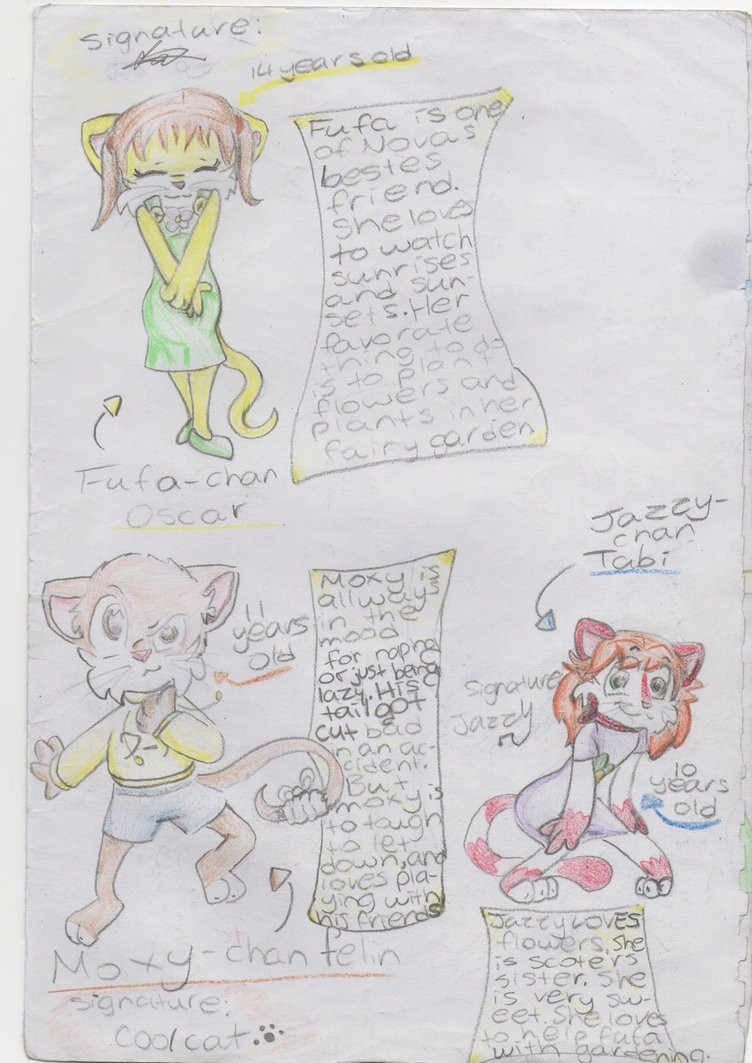 Signature:
14 years old
Fufa is one
of Novas
bestes
friend.
She loves
to watch
sunrises
and sun-
sets. Her
favorate
thing to do
is to plant
flowers and
plants in her
fairy garden
Fufa-chan
Oscar
Moxy is
allways
in the
mood
for naping
or just being
lazy. His
tail got
cut bad
in an ac-
cident.
But
moxy is
to tough
to let
down, and
loves pla-
ying with
his friends
11
years
old
D-
Moxy-chan felin
signature:
cool cat
Jazzy-
chan
Tabi
Signature
Jazzy
10
years
old
Jazzy LOVES
flowers. She
is scoters
sister. She
is very sw-
eet. She loves
to help fufa
with gardening.